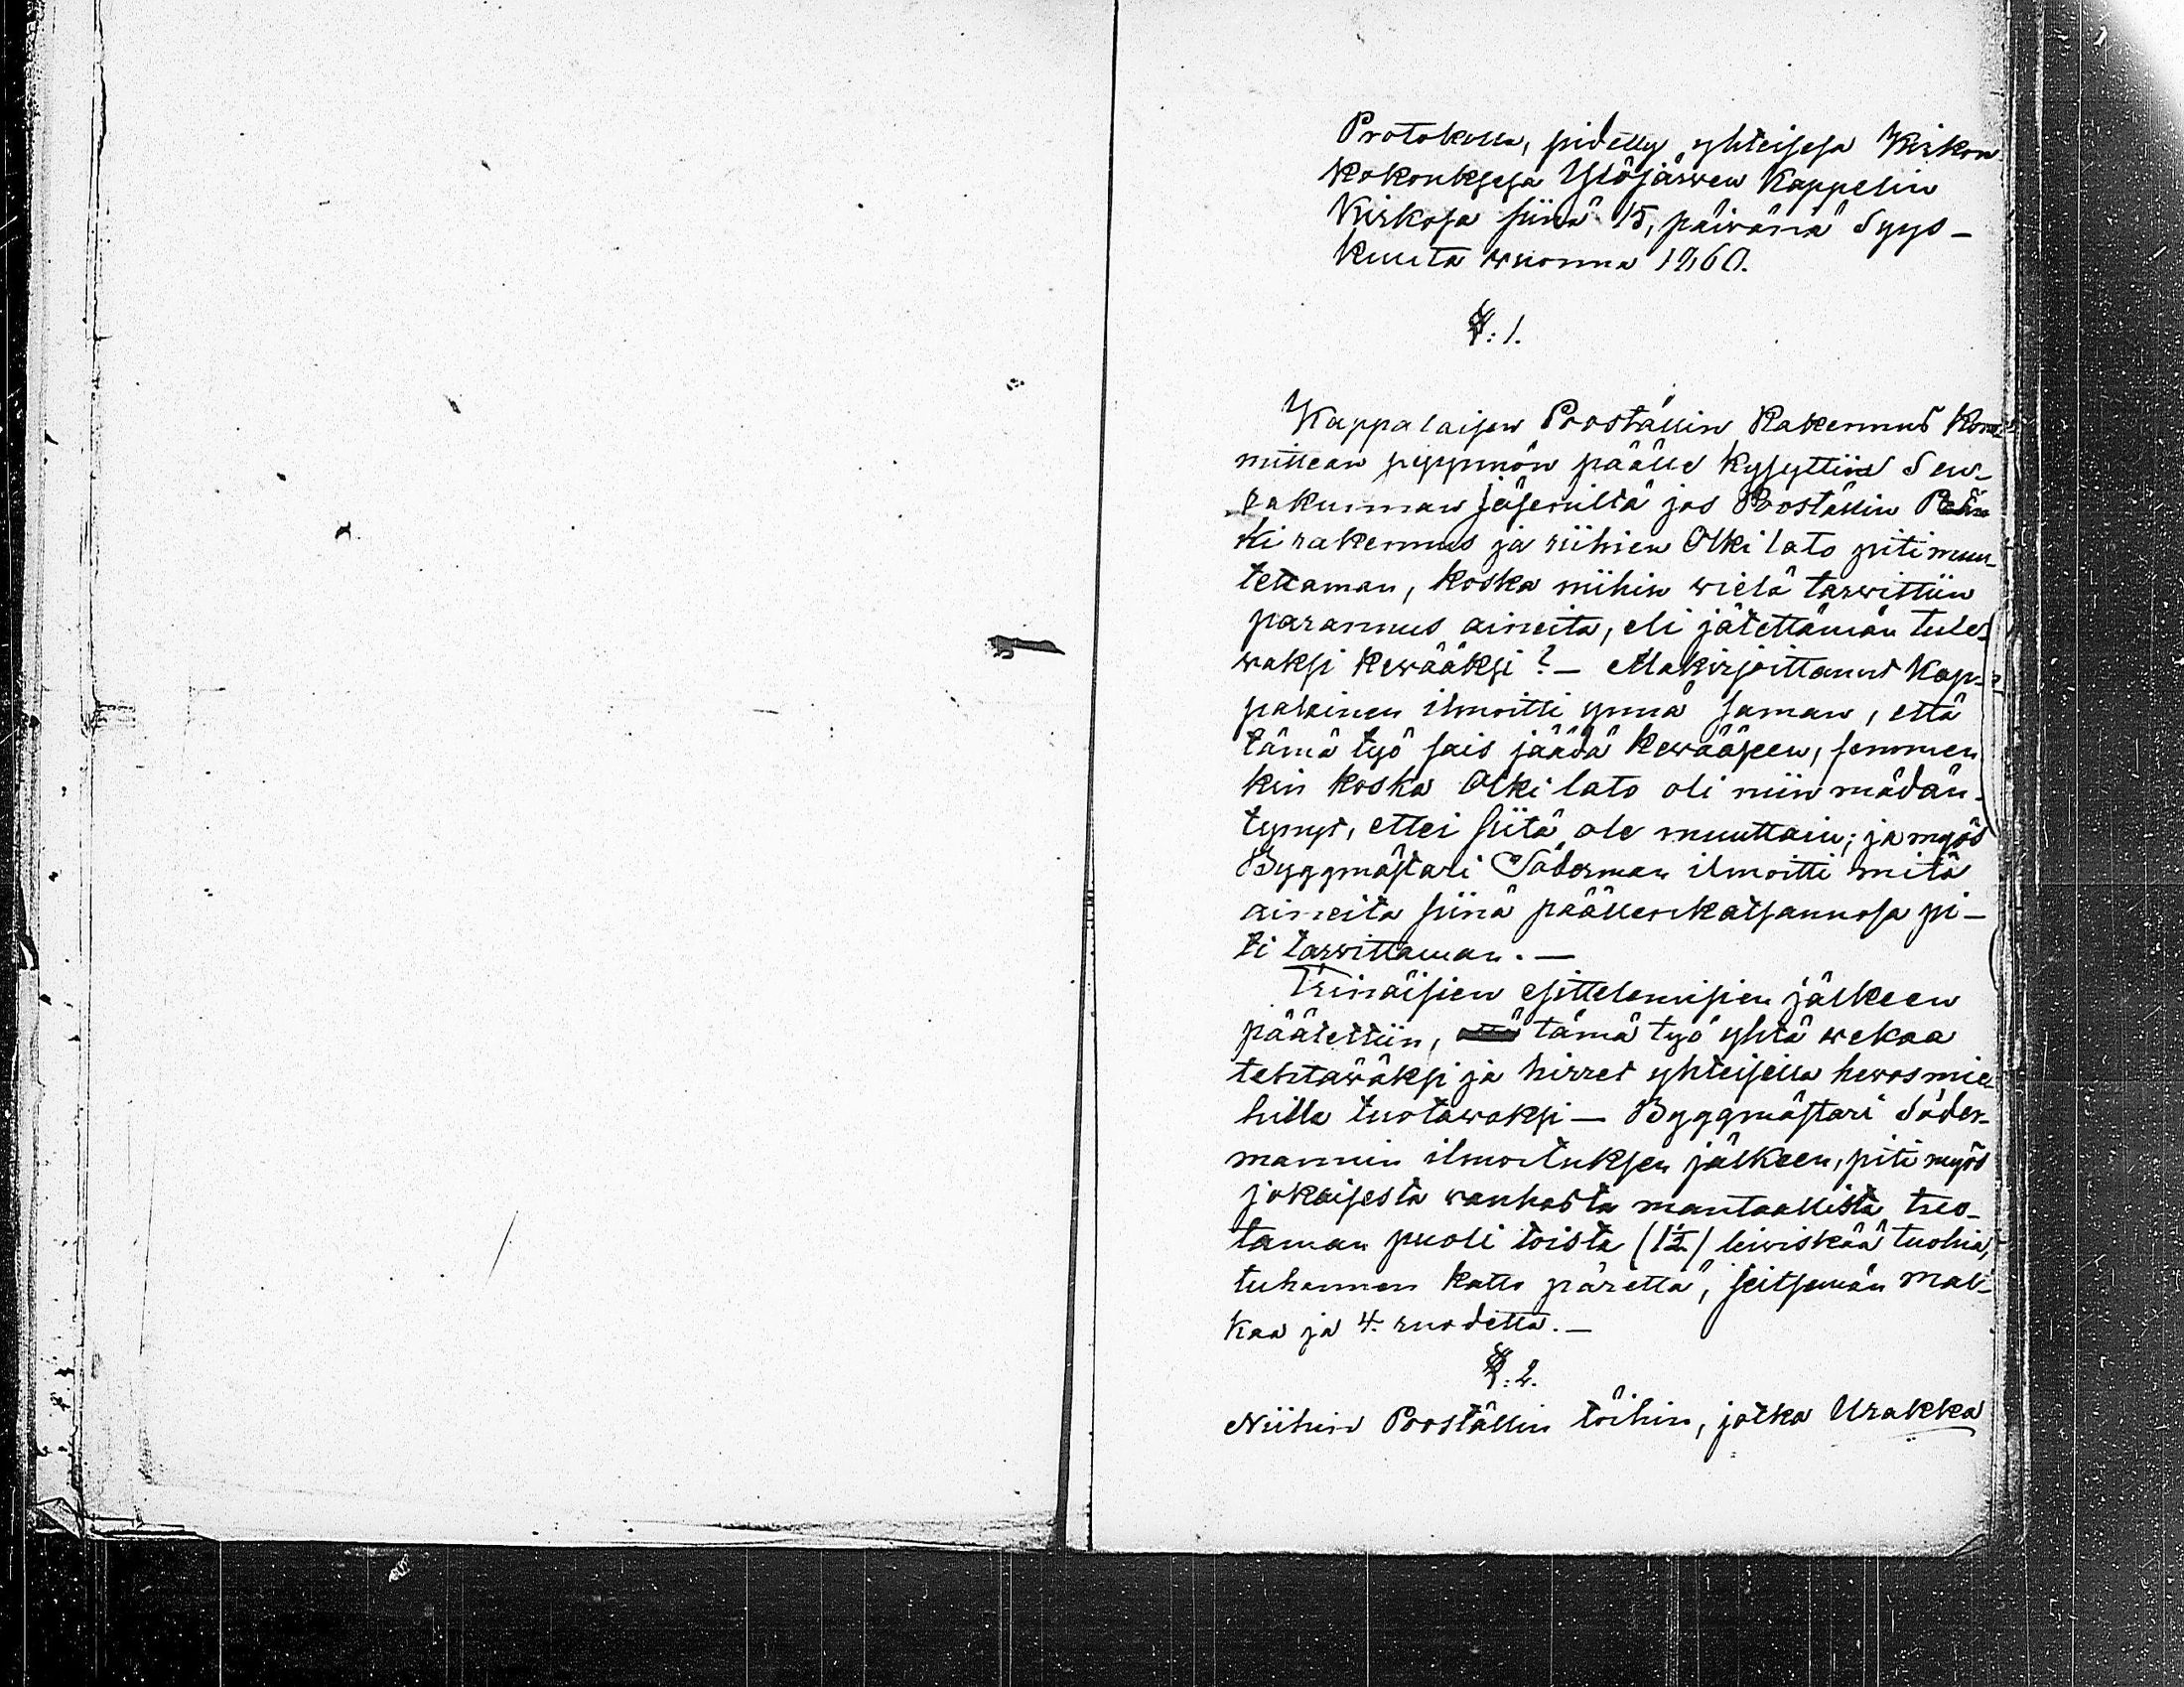 Protokolla, pidetty yhteisesä Kirkon
kokouksesa Ylöjärwen Kappelin
Kirkosa siinä 15, päiwänä Syys-
kuuta wuonna 1860.
§: 1.
Kappalaisen Poställin Rakennus Kom-
mittean pyynnön päälle kysyttiin Seu-
rakunnan jäseniltä jos Poställin
rakennus ja riihien Olki lato piti muu-
tettaman, koska niihin wielä tarwittiin
parannus aineita, eli jätettämän tule-
waksi kewääksi? — Allakirjoittanut Kap-
palainen ilmoitti ynnä saman, että
tämä työ sais jäädä kewääseen, semmen
kin koska Olki lato oli niin mädän-
tynyt, ettei siitä ole muuttain; ja myös
Byggmästari Söderman ilmoitti mitä
aineita siinä päällenkatsannosa pi-
ti tarwittaman. —
Erinäisien esittelemisien jälkeen
päätettiin, tämä työ yhtä wekaa
tehtäwäksi ja hirret yhteisellä hewosmie-
hillä tuotawaksi — Byggmästari Söder-
mannin ilmoituksen jälkeen, piti myös
jokaisesta wanhasta mantaallista tuo-
taman puoli toista (1½) leiwiskää tuohia,
tuhannen katto pärettä, seitsemän mal-
kaa ja 4. ruodetta. —
§: 2.
Niihin Poställin töihin, jotka Urakka